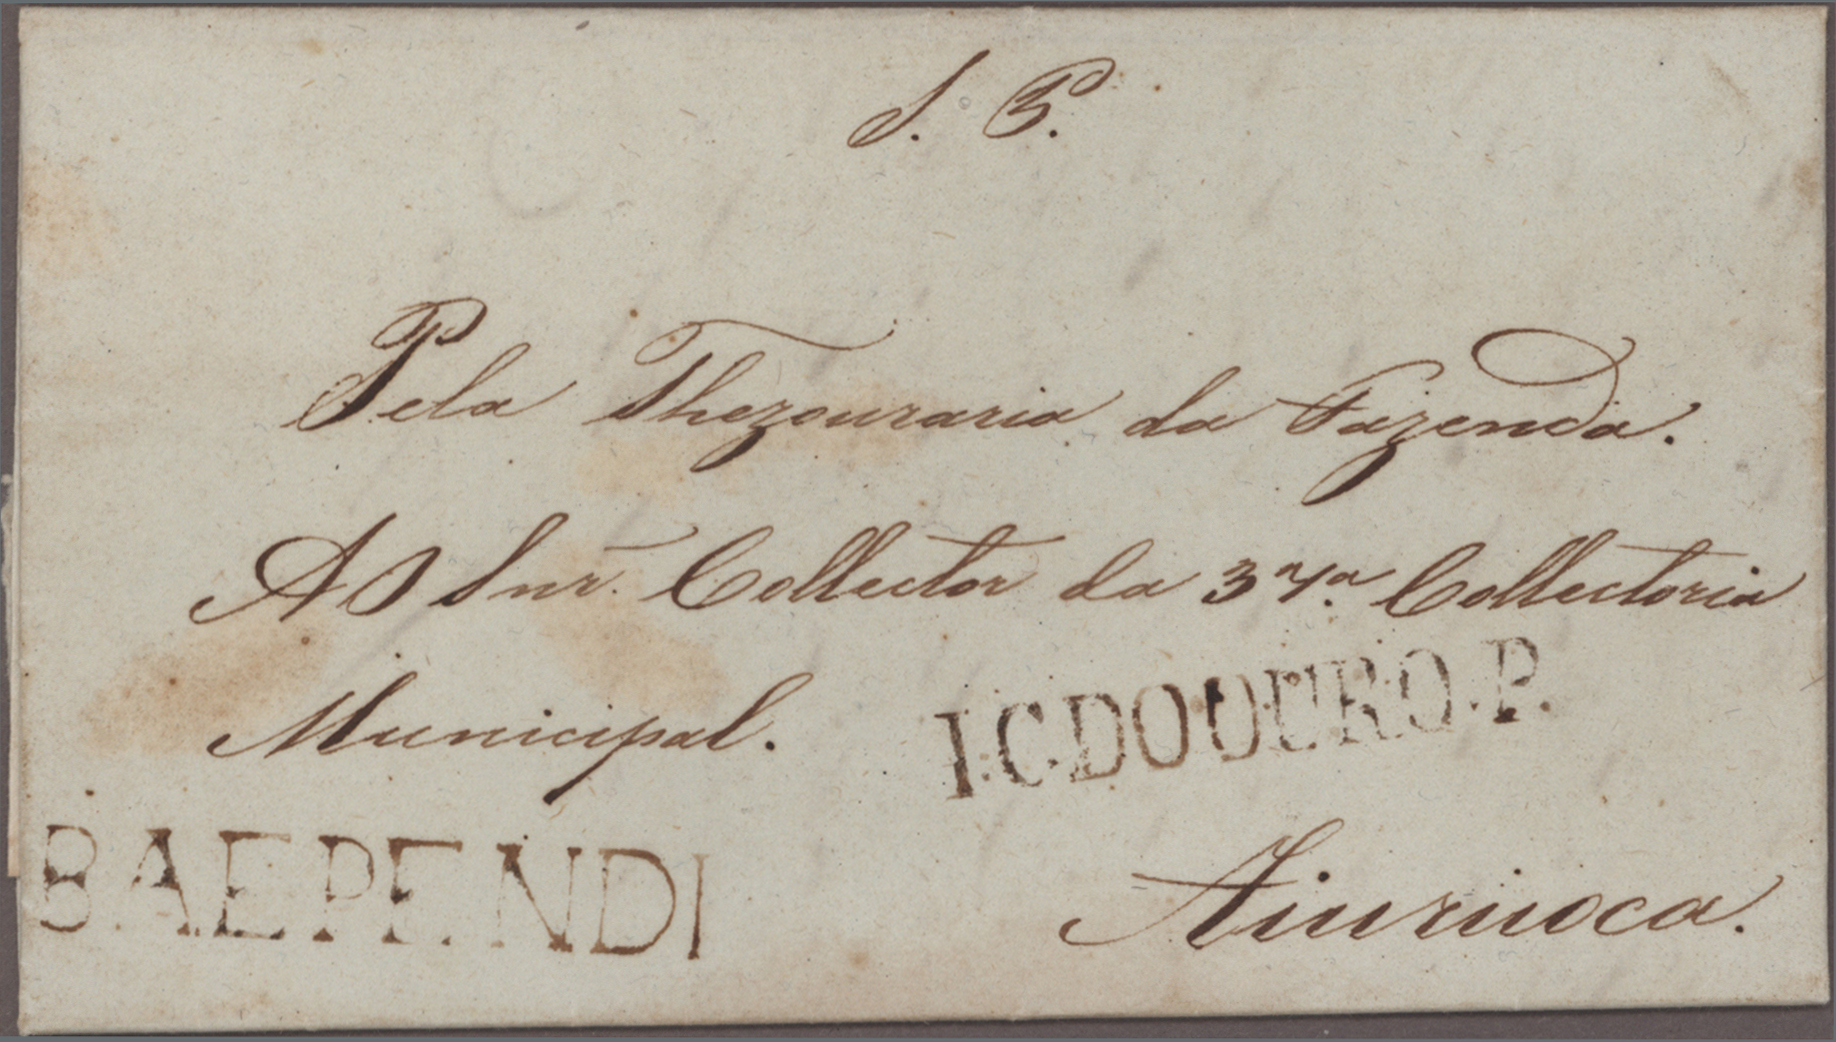 S. P.
Pela Thezouraria da Fazenda.
Ao Snr. Collector da 37.a Collectoria
Municipal.
I.C.DOOURO.P.
BAEPENDI
Aiuruoca.